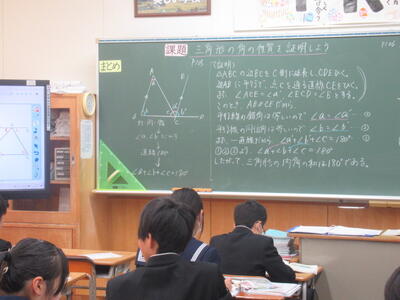 課題 三角形の角の性質を証明しよう
P106
まとめ
P105
A
E
B
C
D
対 同 内 角
∠a, ∠b, ∠c = ?
直線 → 180°
∠a + ∠b + ∠c = 180°
(証明)
△ABC の辺BCをC側に延長し、CDをひく。
ABに平行で、点Cを通る直線CEをひく。
また ∠ACE = ∠a' ∠ECD = ∠b' とする。
このとき、AB//CEだから
平行線の錯角は等しいので ∠a = ∠a' ①
平行線の同位角は等しいので ∠b = ∠b' ②
また、一直線だから ∠a' + ∠b' + ∠c = 180° ③
①②③より、∠a + ∠b + ∠c = 180°
したがって、三角形の内角の和は180°である。